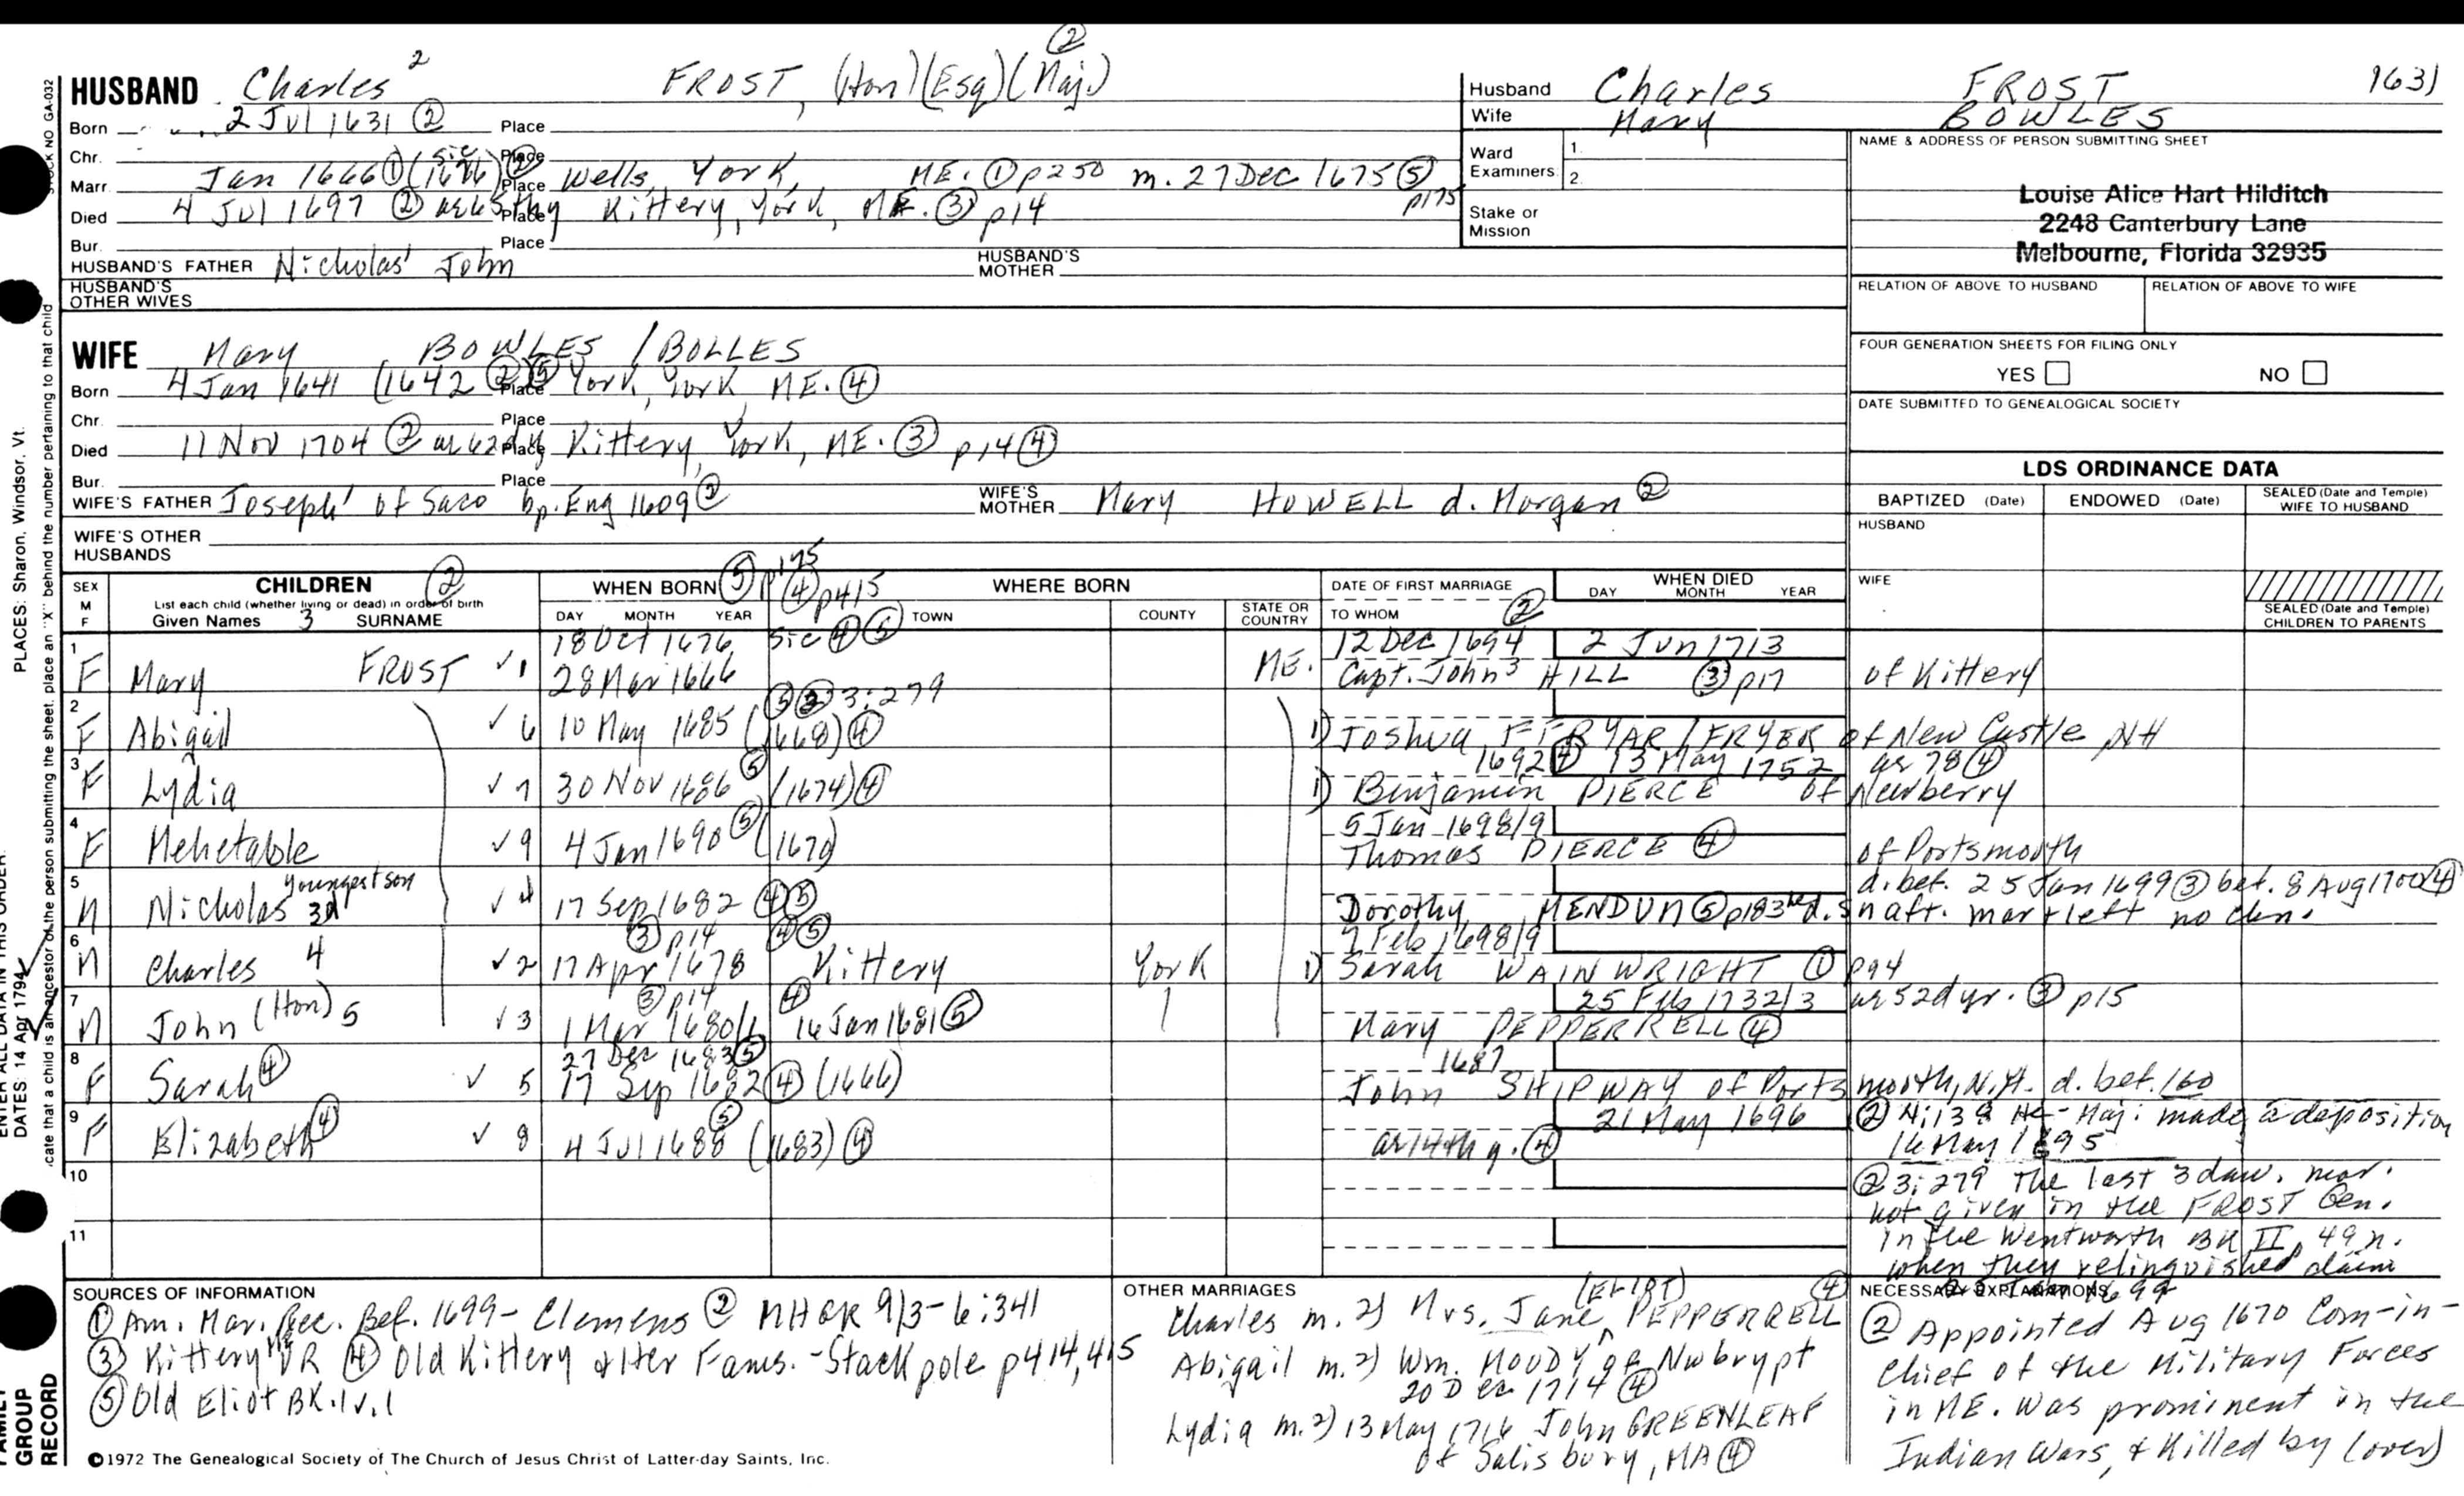 HUSBAND Charles² FROST, (Hon)(Esq)(Maj) ②
Born 2 Jul 1631 ② Place
Chr. Place
Marr. Jan 1666 ① (sic) ② Place Wells, York, ME. ① p250 m. 27 Dec 1675 ⑤ p175
Died 4 Jul 1697 ② Place Kittery, York, ME. ③ p14
Bur. Place
HUSBAND'S FATHER Nicholas' John
HUSBAND'S MOTHER
HUSBAND'S OTHER WIVES
WIFE Mary BOWLES / BOLLES
Born 4 Jan 1641 (1642 ②) ⑤ Place York, York ME. ④
Chr. Place
Died 11 Nov 1704 ② Place Kittery, York, ME. ③ p14 ④
Bur. Place
WIFE'S FATHER Joseph' of Saco bp. Eng 1609 ②
WIFE'S MOTHER Mary HOWELL d. Morgan ②
WIFE'S OTHER HUSBANDS
Husband Charles FROST 1631
Wife Mary BOWLES
Ward Examiners 1. 2.
Stake or Mission
NAME & ADDRESS OF PERSON SUBMITTING SHEET
Louise Alice Hart Hilditch
2248 Canterbury Lane
Melbourne, Florida 32935
RELATION OF ABOVE TO HUSBAND RELATION OF ABOVE TO WIFE
FOUR GENERATION SHEETS FOR FILING ONLY
YES NO
DATE SUBMITTED TO GENEALOGICAL SOCIETY
LDS ORDINANCE DATA
BAPTIZED (Date) ENDOWED (Date) SEALED (Date and Temple) WIFE TO HUSBAND
HUSBAND
WIFE
SEALED (Date and Temple) CHILDREN TO PARENTS
SEX M F CHILDREN ② WHEN BORN ⑤ p175 ④ p415 WHERE BORN DATE OF FIRST MARRIAGE WHEN DIED
List each child (whether living or dead) in order of birth
Given Names 3 SURNAME DAY MONTH YEAR TOWN COUNTY STATE OR COUNTRY TO WHOM ② DAY MONTH YEAR
18 Oct 1676 sic ④ ⑤ 12 Dec 1694 2 Jun 1713
1 F Mary FROST ✓ 1 28 Mar 1666 ME. Capt. John³ HILL ③ p17 of Kittery
⑤ ② 3:279
2 F Abigail ✓ 6 10 May 1685 (1668) ④ 1) Joshua FRYAR / FRYER of New Castle NH
1692 ④ 13 May 1752 ae 78 ④
3 F Lydia ✓ 7 30 Nov 1686 ⑤ (1674) ④ 1) Benjamin PIERCE of Newberry
5 Jan 1698/9
4 F Mehetable ✓ 9 4 Jan 1690 ⑤ (1670) Thomas PIERCE ④ of Portsmouth
d. bef. 25 Jan 1699 ③ bet. 8 Aug 1700 ④
5 M Nicholas 3d youngest son ✓ 4 17 Sep 1682 ④ ⑤ Dorothy MENDUM ⑤ p183 d. sn aft. mar + left no chn.
③ p14 ④ ⑤ 7 Feb 1698/9
6 M Charles 4 ✓ 2 17 Apr 1678 Kittery York 1) Sarah WAINWRIGHT ① p94
③ p14 ④ 25 Feb 1732/3 ae 52d yr. ③ p15
7 M John (Hon) 5 ✓ 3 1 Mar 1680/1 16 Jan 1681 ⑤ Mary PEPPERRELL ④
27 Dec 1683 ⑤ 1687
8 F Sarah ④ ✓ 5 17 Sep 1682 ④ (1666) John SHIPWAY of Portsmouth, N.H. d. bef. 160
21 May 1696
9 F Elizabeth ④ ✓ 8 4 Jul 1688 ⑤ (1683) ④ ae 14th y. ④
10
11
② 4:138 He - Maj: made a deposition
16 May 1695
② 3:279 The last 3 dau. mar.
not given in the FROST Gen.
in the Wentworth BK II, 49 n.
when they relinquished claim
1699
SOURCES OF INFORMATION
① Am. Mar. Rec. Bef. 1699 - Clemens ② NHGR 9/3-6:341
③ Kittery ME VR ④ Old Kittery & Her Fams. - Stackpole p414, 415
⑤ Old Eliot BK.1 v.1
©1972 The Genealogical Society of The Church of Jesus Christ of Latter-day Saints, Inc.
OTHER MARRIAGES
Charles m. 2) Mrs. Jane (ELIOT) PEPPERRELL ④
Abigail m. 2) Wm. MOODY of Nwbrypt
20 Dec 1714 ④
Lydia m. 2) 13 May 1716 John GREENLEAF
of Salisbury, MA ④
NECESSARY EXPLANATIONS
② Appointed Aug 1670 Com-in-
chief of the Military Forces
in ME. Was prominent in the
Indian Wars, & Killed by (over)
STOCK NO GA-032
PLACES: Sharon, Windsor, Vt.
ENTER ALL DATA IN THIS ORDER:
DATES: 14 Apr 1794
cate that a child is an ancestor of the person submitting the sheet, place an "X" behind the number pertaining to that child
FAMILY GROUP RECORD